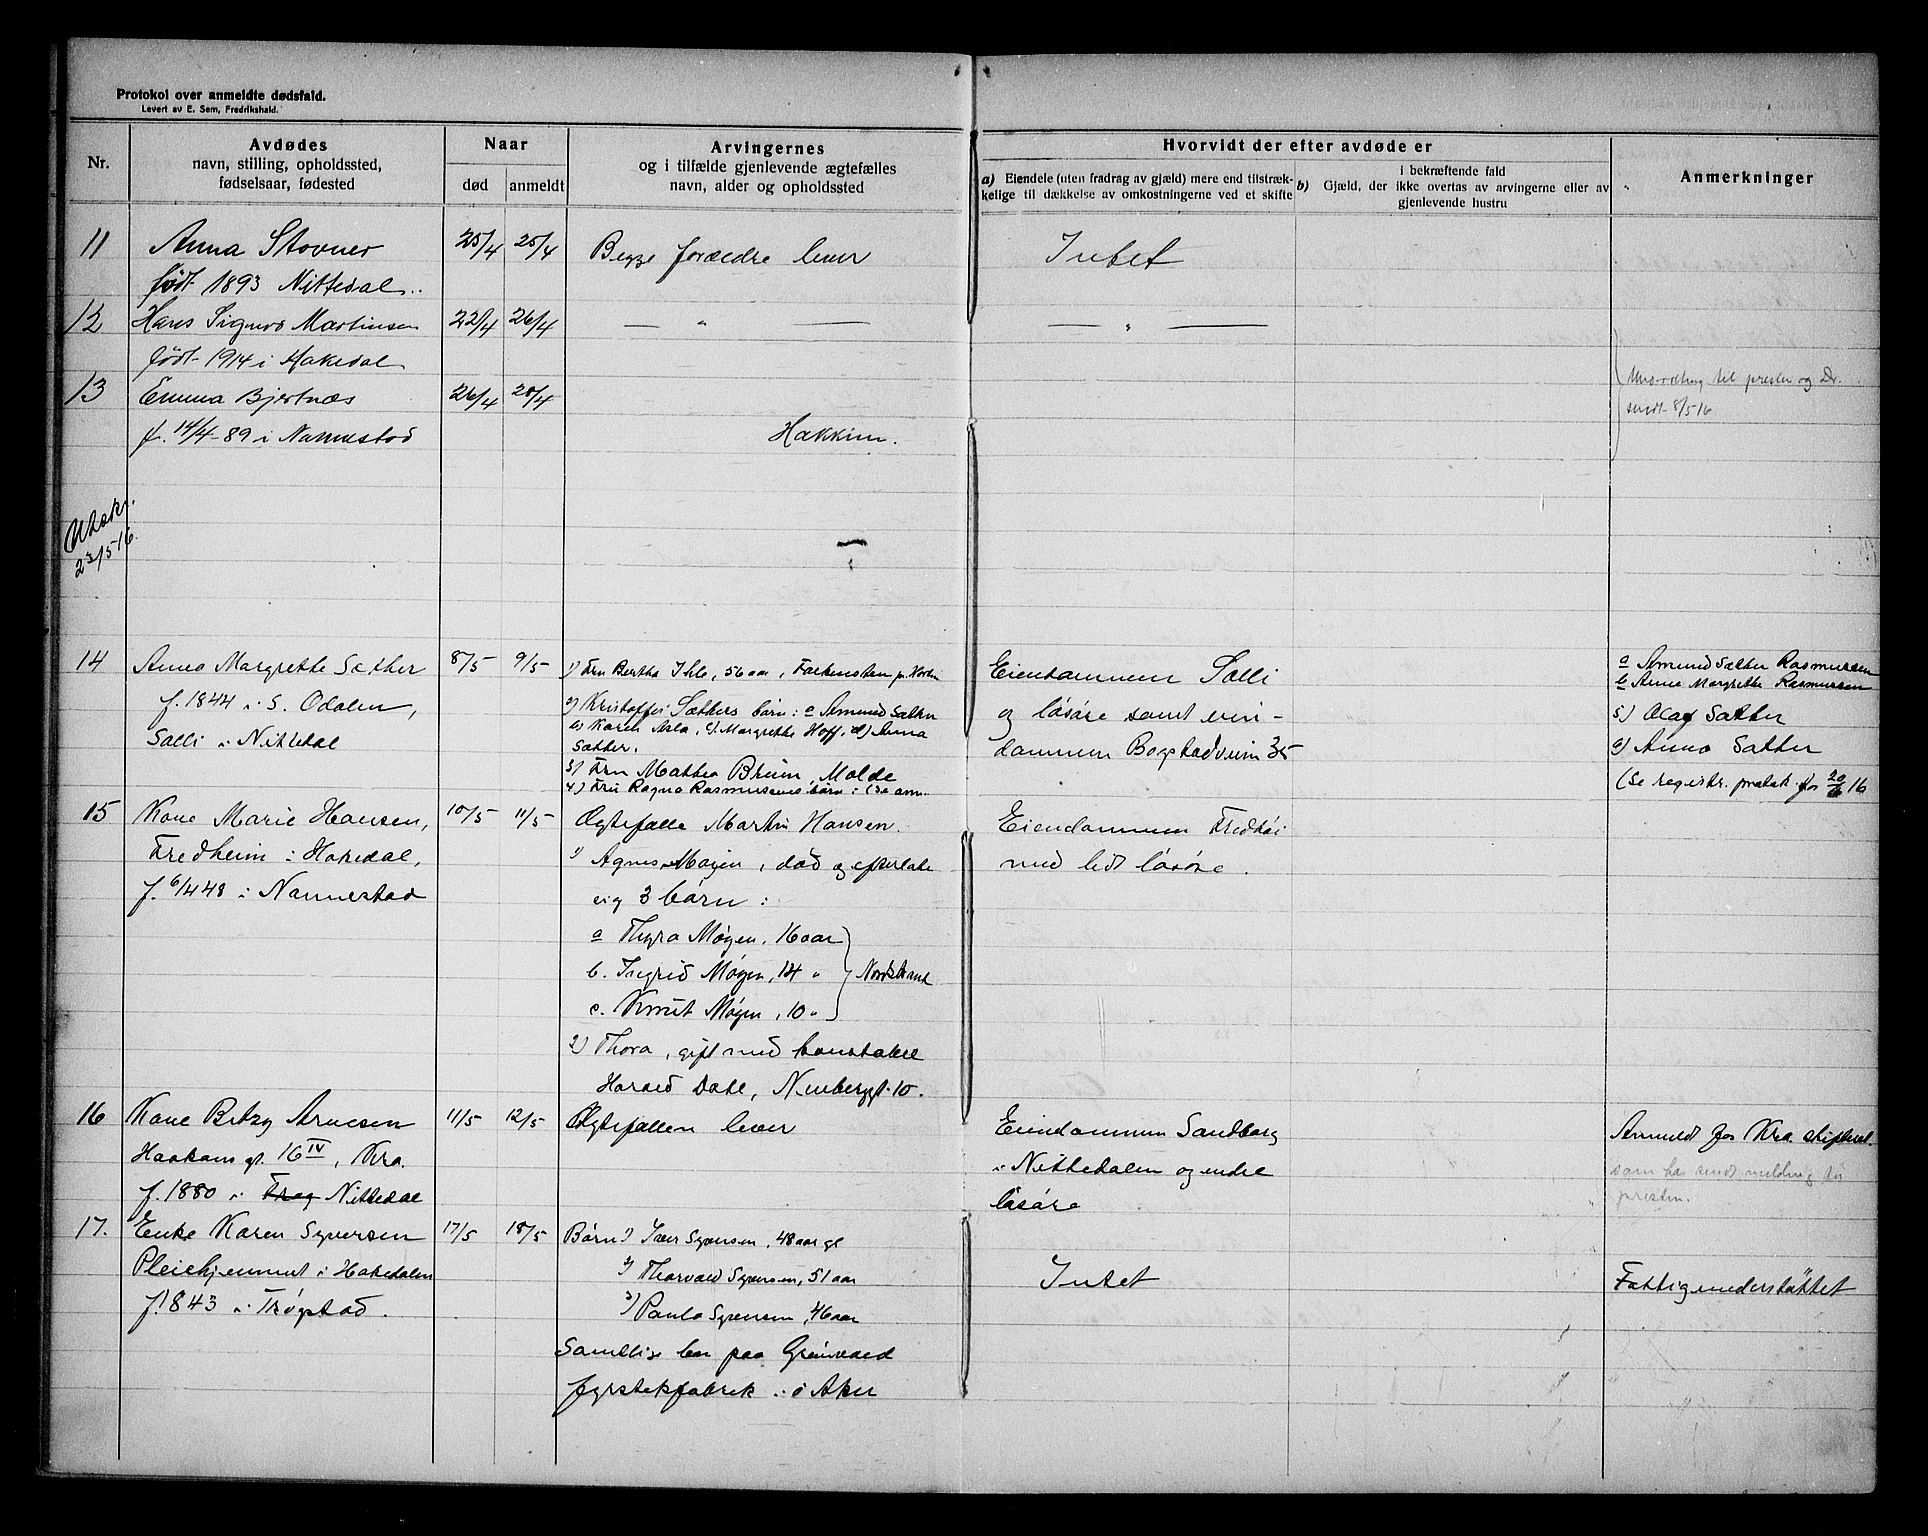 Protokol over anmeldte dødsfald.
Levert av E. Sem, Fredrikshald.
Nr.
Avdødes
navn, stilling, opholdssted,
fødselsaar, fødested
Naar
død
anmeldt
Arvingernes
og i tilfælde gjenlevende ægtefælles
navn, alder og opholdssted
Hvorvidt der efter avdøde er
a) Eiendele (uten fradrag av gjæld) mere end tilstræk-
kelige til dækkelse av omkostningerne ved et skifte
i bekræftende fald
b) Gjæld, der ikke overtas av arvingerne eller av
gjenlevende hustru
Anmerkninger
11 Anna Stovner 25/4 25/4 Begge forældre lever Intet
født 1893 Nittedal
12 Hans Signor Martinsen 22/4 26/4 — " — — " —
født 1914 i Hakedal
13 Emma Bjertnæs 26/4 28/4 til presten og Dr.
sendt 8/5 16
f. 14/4-89 i Nannestad Hakkim.
Utskr.
23/5 16.
14 Anna Margrethe Sæther 8/5 9/5 1) Fru Bertha Ihle, 56 aar, Falkensten p. Eiendommen Sælli a Amund Sæther Rasmussen
b Anna Margrethe Rasmussen
f. 1844 i S. Odalen, 2) Kristoffer Sæthers børn: a Amund Sæther og løsøre samt eien- 5) Olaf Sæther
b) Karen Asla, c) Margrethe Hoff, d) Anna
Sælli i Nittedal Sæther. dommen Bogstadveien 35 6) Anna Sæther
3) Fru Mathea Bruun, Molde
4) Fru Ragna Rasmussens børn: (se anm. (Se registr. protok. for 20/6 16
15 Kone Marie Hansen, 10/5 11/5 Ægtefælle Martin Hansen. Eiendommen Fredhei
Fredheim i Hakedal, 1) Agnes Møgen, død og efterlate med lidt løsøre.
f. 6/4 48 i Nannestad sig 3 børn:
a Thyra Møgen, 16 aar
b. Ingrid Møgen, 14 " Nordstrand
c. Knut Møgen, 10 "
2) Thora, gift med konstabel
Harald Dahl, Nunbergt. 10.
16 Kone Betzy Arnesen 11/5 12/5 Ægtefællen lever Eiendommen Sandborg Anmeldt for Kra. skifteret
Haakons gt. 16 IV, Kra. i Nittedalen og endre som har sendt melding til
f. 1880 i Frog Nittedal løsøre presten.
17. Enke Karen Syversen 17/5 18/5 Børn 1) Iver Syversen, 48 aar gl
Pleiehjemmet i Hakedalen 2) Thorvald Syversen, 51 aar Intet Fattigunderstøttet
f. 1843 i Trøgstad. 3) Paula Syversen, 46 aar
Samtlige bor paa Grønvold
fyrstikfabrik i Aker